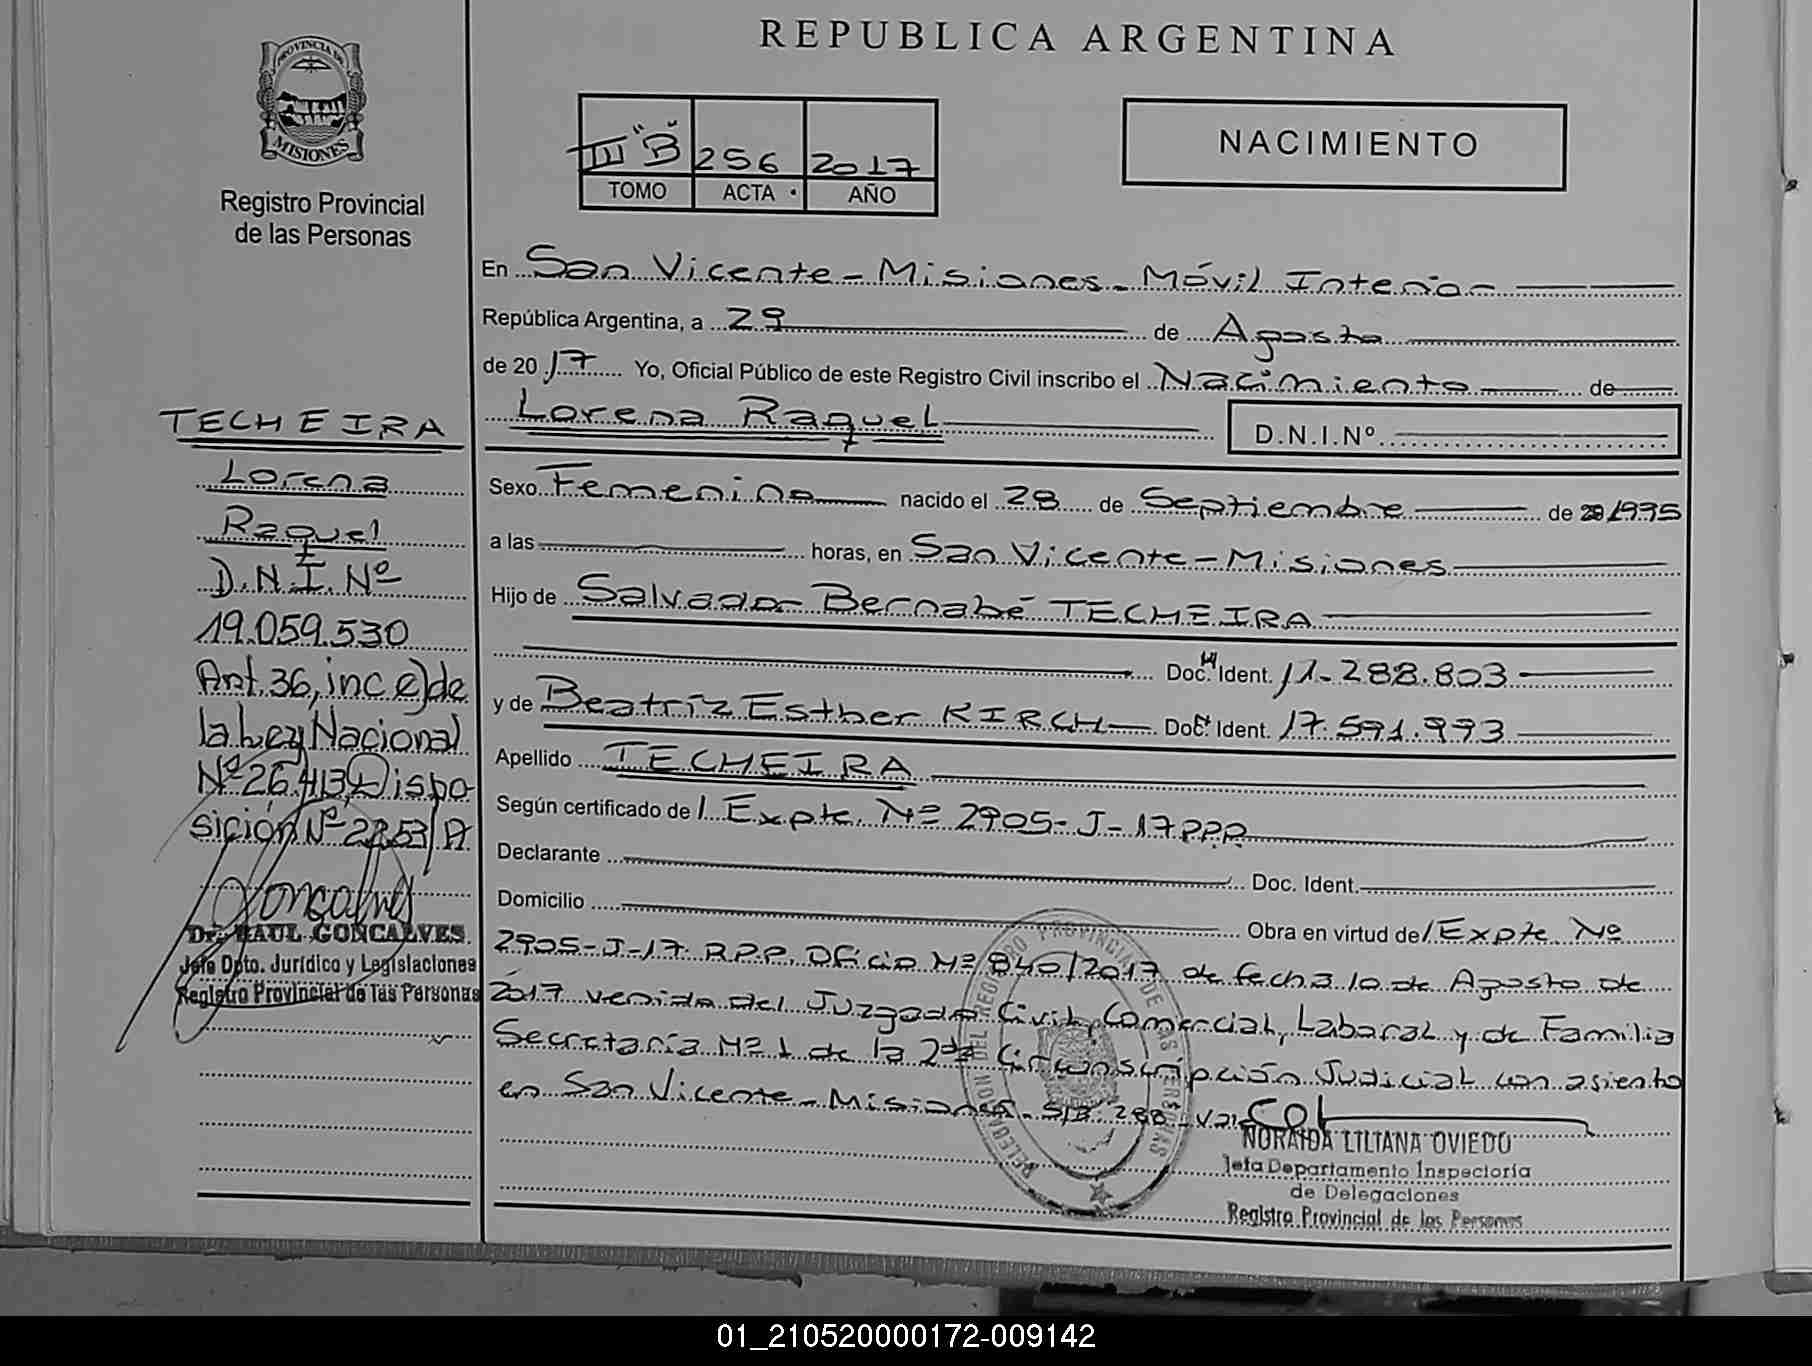 REPUBLICA ARGENTINA
PROVINCIA DE
MISIONES
Registro Provincial
de las Personas
III "B" 256 2017
TOMO ACTA AÑO
NACIMIENTO
En San Vicente - Misiones - Móvil Interior
República Argentina, a 29 de Agosto
de 2017 Yo, Oficial Público de este Registro Civil inscribo el Nacimiento de
Lorena Raquel D.N.I.Nº
Sexo Femenino nacido el 28 de Septiembre de 1995
a las horas, en San Vicente - Misiones
Hijo de Salvador Bernabé TECHEIRA
Doc. Ident. M 11.288.803
y de Beatríz Esther KIRCH Doc. Ident. 17.591.993
Apellido TECHEIRA
Según certificado de / Expte. Nº 2905-J-17 RPP
Declarante Doc. Ident.
Domicilio Obra en virtud de / Expte Nº
2905-J-17 R.P.P. Oficio Nº 840/2017 de fecha 10 de Agosto de
2017 venido del Juzgado Civil, Comercial, Laboral y de Familia
Secretaría Nº 1 de la 2da Circunscripción Judicial con asiento
en San Vicente - Misiones - S/B: 288
NORAIDA LILIANA OVIEDO
Jefa Departamento Inspectoría
de Delegaciones
Registro Provincial de las Personas
TECHEIRA
Lorena
Raquel
D.N.I. Nº
19.059.530
Art. 36, inc e) de
la Ley Nacional
Nº 26.413, Dispo-
sición Nº 2253/17
Goncalves
Dr. RAUL GONCALVES
Jefe Dpto. Jurídico y Legislaciones
Registro Provincial de las Personas
DELEGACION DEL REGISTRO PROVINCIAL DE LAS PERSONAS
01_210520000172-009142